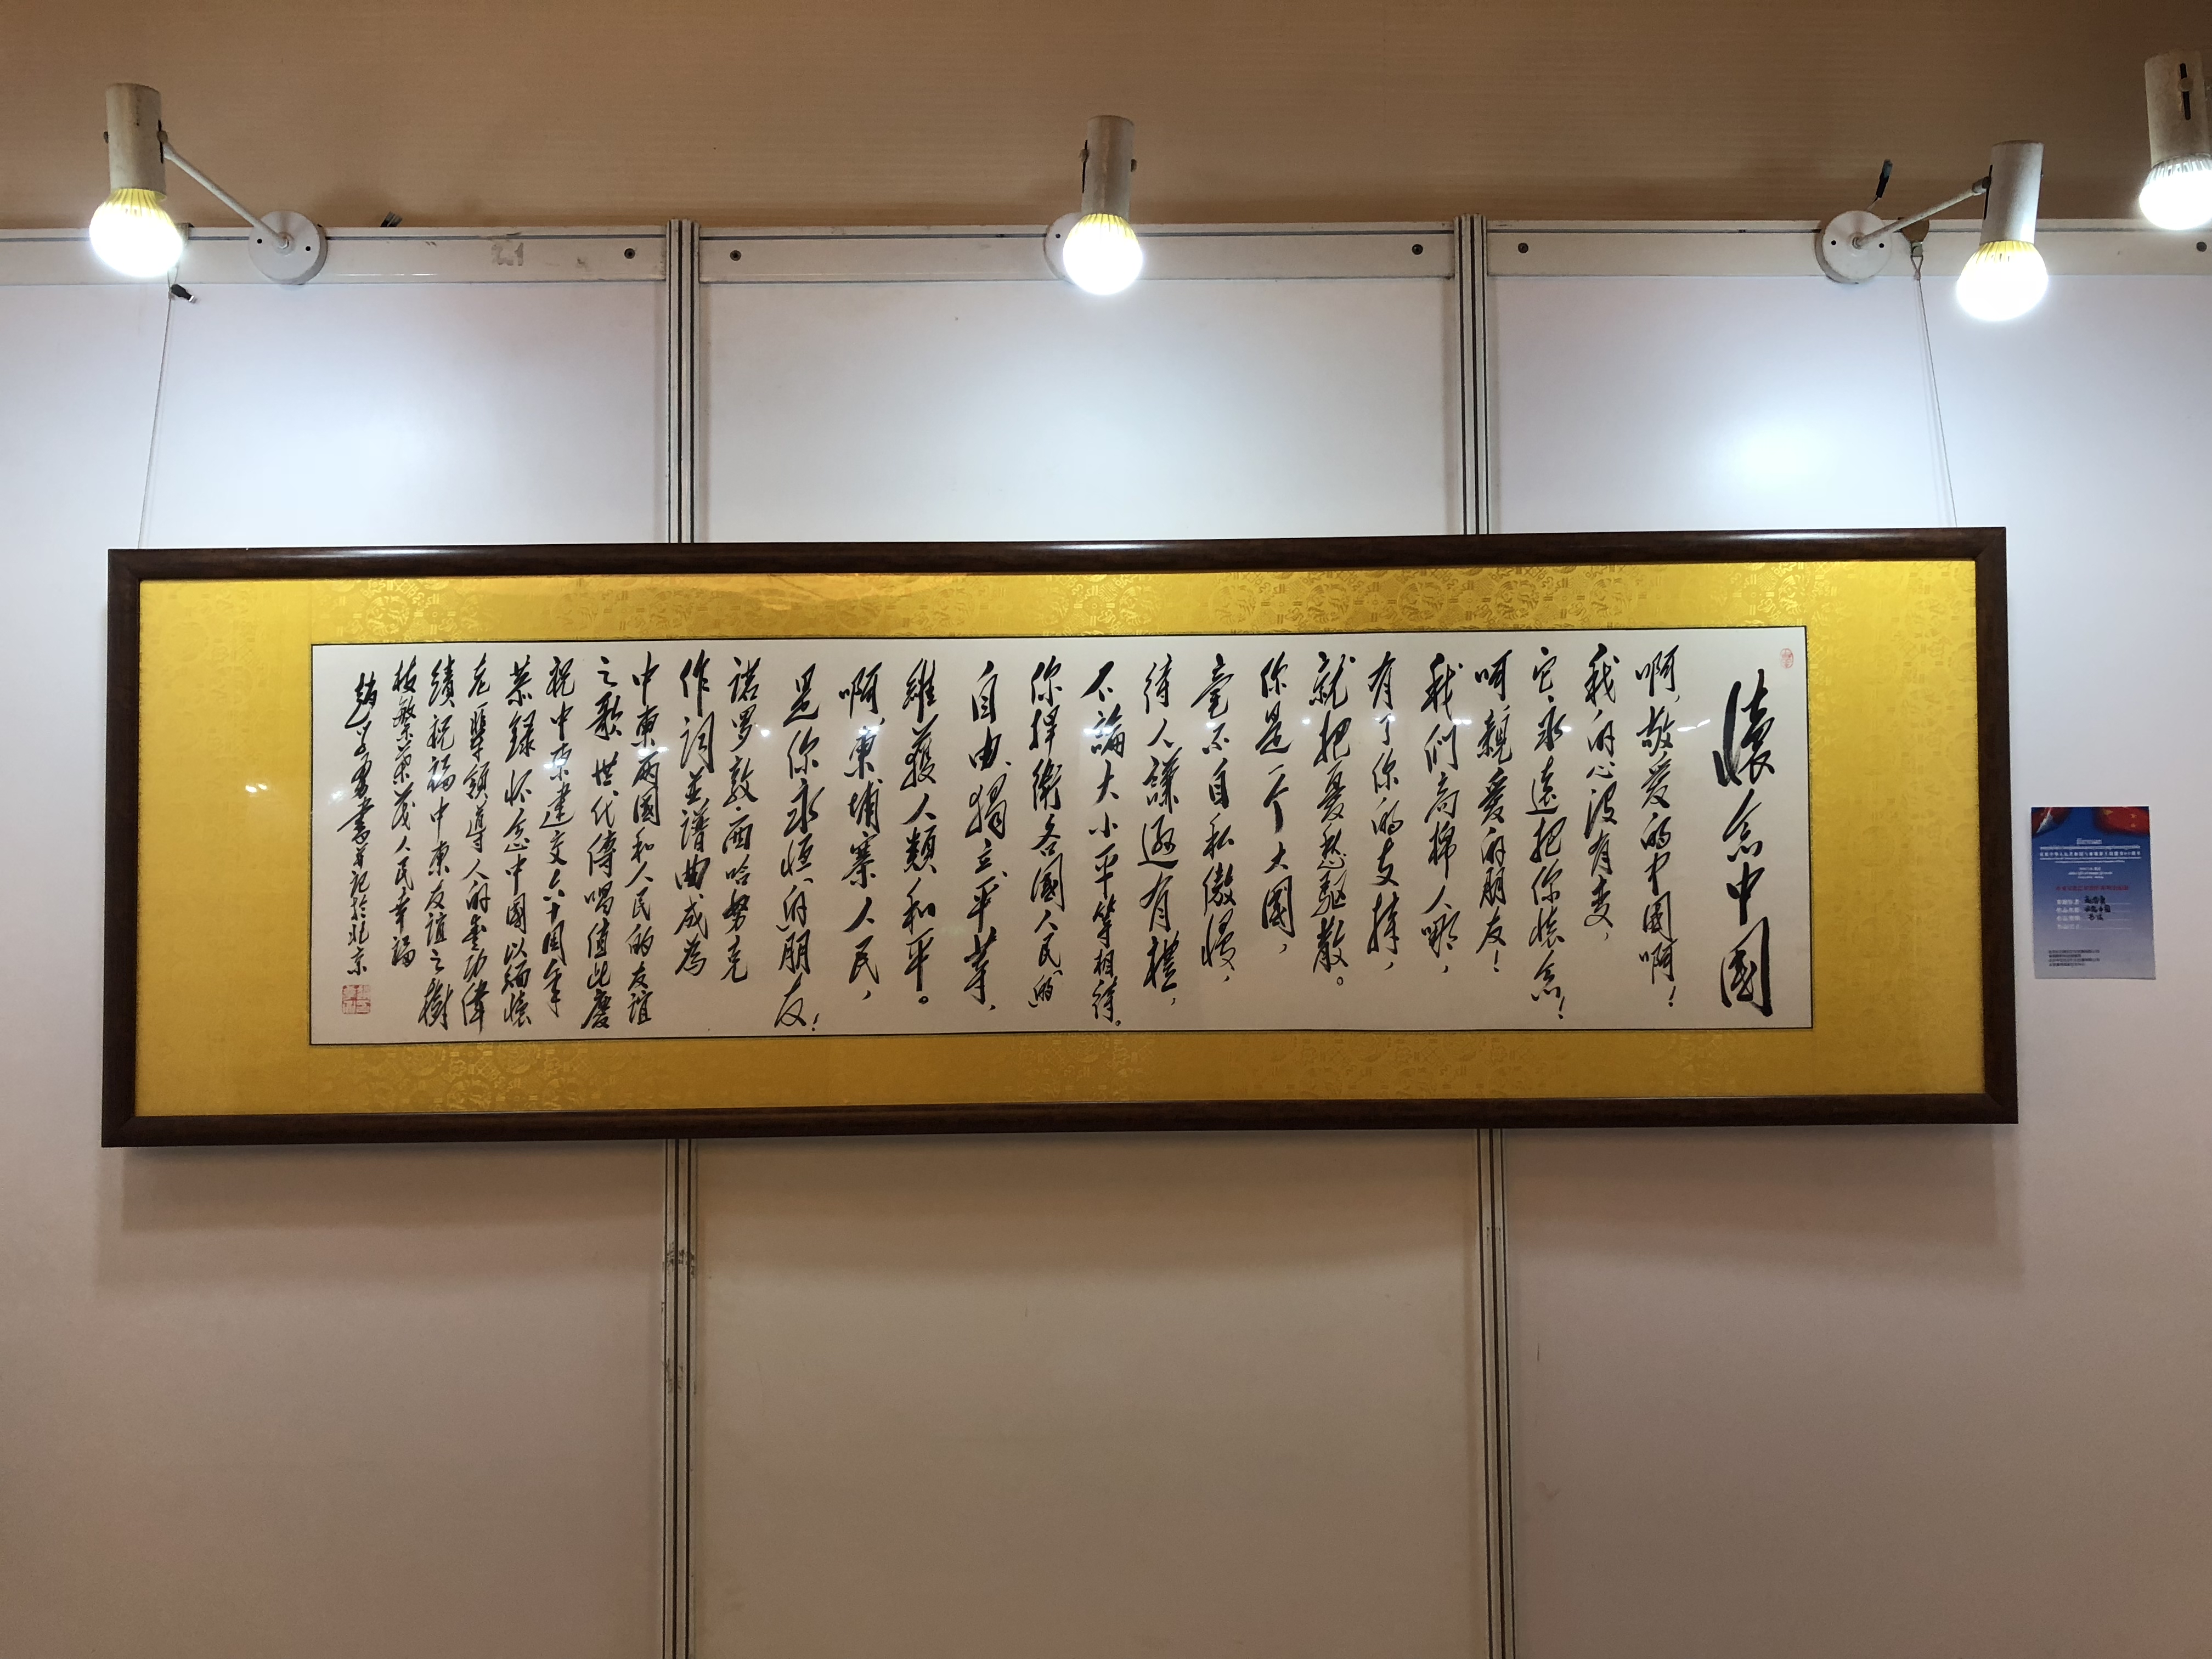 懷念中國
啊，敬爱的中國啊！
我的心没有变，
它永遠把你懷念！
呵親爱的朋友！
我们高棉人哪，
有了你的支持，
就把憂愁驱散。
你是一个大國，
毫不自私傲慢，
待人謙遜有禮，
不論大小平等相待。
你捍衛各國人民的
自由、獨立、平等、
維護人類和平。
啊，柬埔寨人民，
是你永恒的朋友！
诺罗敦·西哈努克
作词並譜曲成為
中柬两國和人民的友谊
之歌世代傳唱值此慶
祝中柬建交六十周年
恭録怀念中國以缅懷
老一輩領導人的豐功偉
績祝福中柬友谊之樹
枝繁葉茂人民幸福
書並記於北京